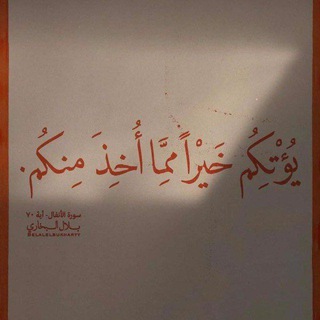 يُؤْتِكُمْ خَيْراً مِمَّا أُخِذَ مِنكُم.
سورة الأنفال - آية ٧٠
بلال البخاري
BELALELBUKHARYY